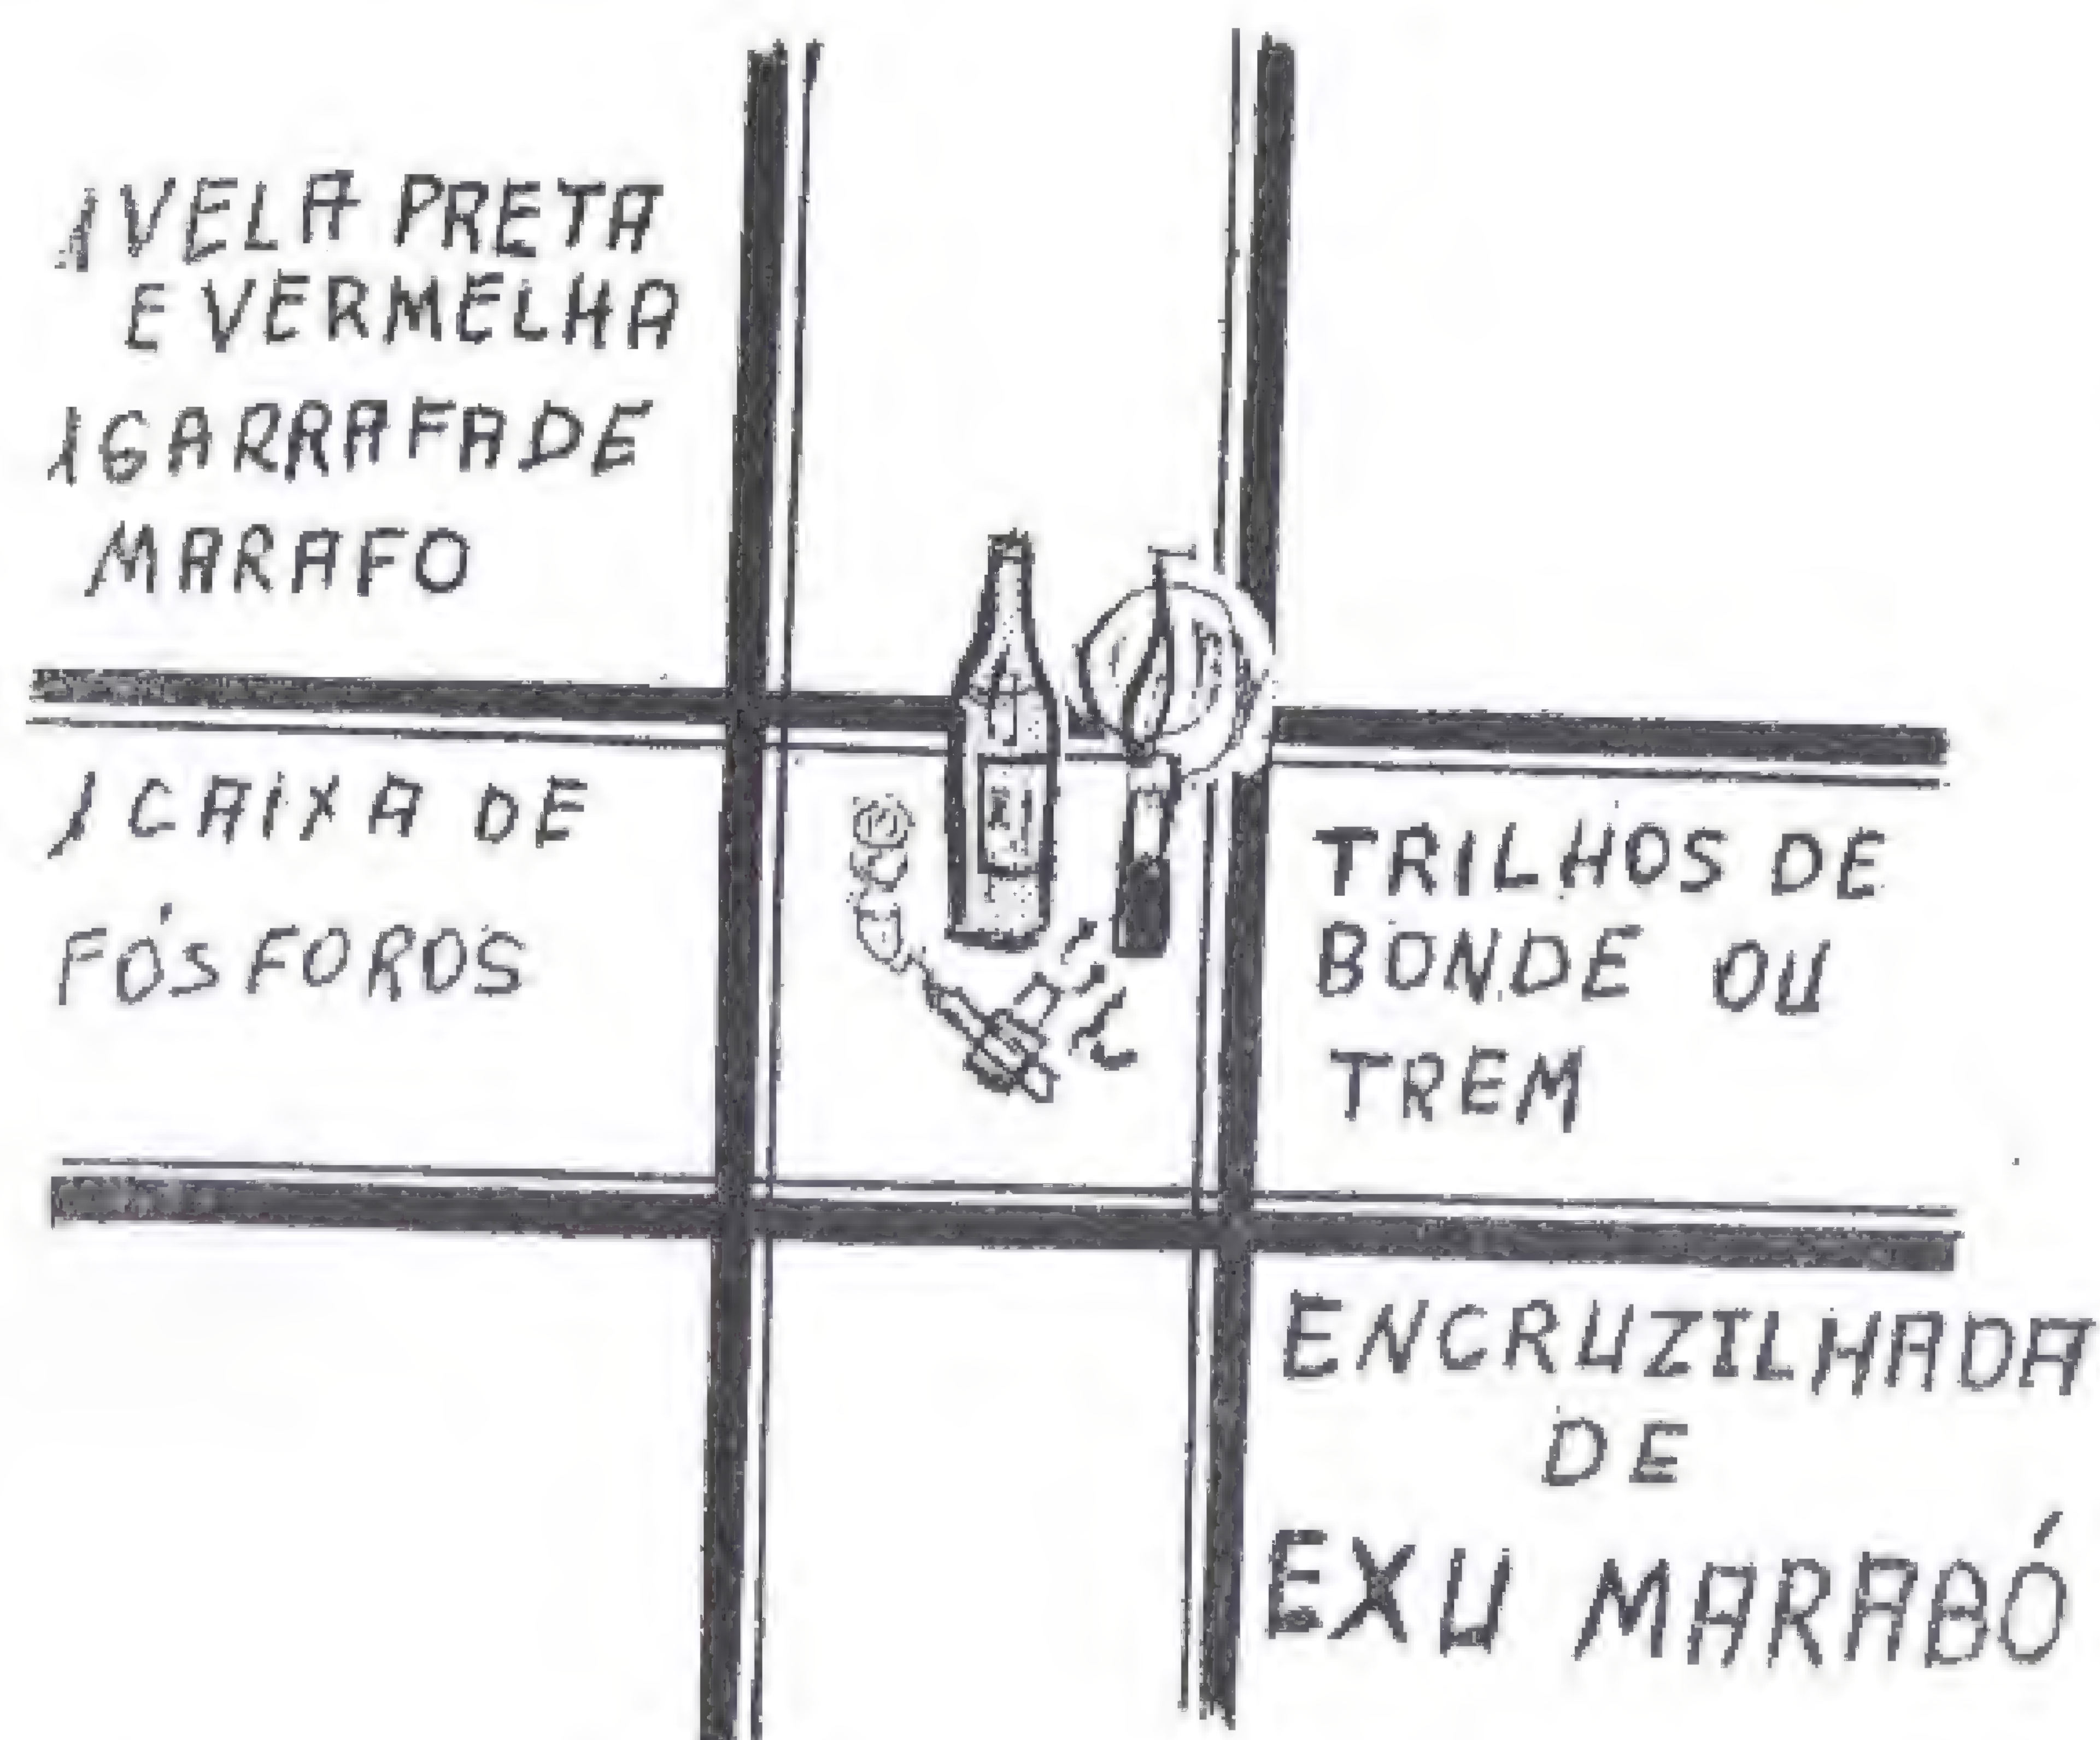 1 VELA PRETA
E VERMELHA
1 GARRAFA DE
MARAFO
1 CAIXA DE
FÓSFOROS
TRILHOS DE
BONDE OU
TREM
ENCRUZILHADA
DE
EXU MARABÓ